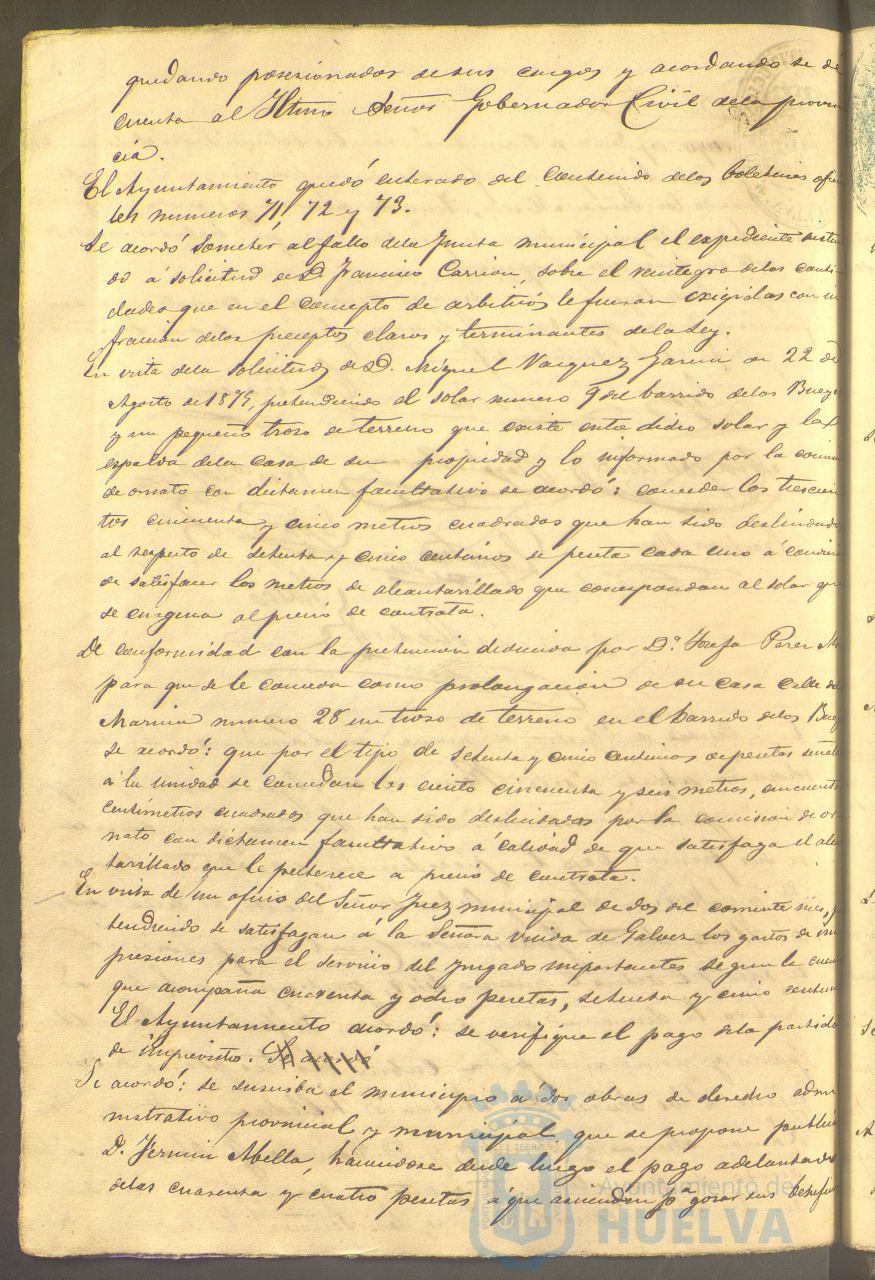 quedando posesionados de sus cargos y acordando se dé
cuenta al Iltmo Señor Gobernador Civil de la provin
cia.
El Ayuntamiento quedó enterado del contenido delos boletines oficia
les numeros 71, 72 y 73.
Se acordó someter al fallo dela Junta municipal el expediente
do á solicitud de D. Francisco Carrion, sobre el reintegro delas canti
dades que en el concepto de arbitrios le fueron exigidas con in
fraccion delos preceptos claros y terminantes dela Ley.
En vista dela solicitud de D. Miguel Vazquez Garcia de 22 de
Agosto de 1875, pretendiendo el solar numero 9 del barrido delos Bueyes
y un pequeño trozo de terreno que existe entre dicho solar y la
espalda dela casa de su propiedad y lo informado por la comision
de ornato con dictamen facultativo se acordó: conceder los trescien
tos cincuenta y cinco metros cuadrados que han sido deslindados
al respecto de setenta y cinco centimos de peseta cada uno á condicion
de satisfacer los metros de alcantarillado que correspondan al solar que
se enagena al precio de contrata.
De conformidad con la pretension deducida por D.ª Josefa Perez
para que se le conceda como prolongacion de su casa Calle de
Marina numero 28 un troso de terreno en el barrido delos Bueyes
se acordó: que por el tipo de setenta y cinco centimos de pesetas
á la unidad se concedan los ciento cincuenta y seis metros, cincuenta
centimetros cuadrados que han sido deslindados por la comision de or
nato con dictamen facultativo á calidad de que satisfaga el alcan
tarillado que le pertenece a precio de contrata.
En vista de un oficio del Señor Juez municipal de dos del corriente mes, pre
tendiendo se satisfagan á la Señora viuda de Galvez los gastos de im
presiones para el servicio del Juzgado importantes segun la cuenta
que acompaña cuarenta y ocho pesetas, setenta y cinco centimos
El Ayuntamiento acordó: se verifique el pago dela partida
de imprevisto.
Se acordó: se suscriba el municipio a dos obras de derecho admi
nistrativo provincial y municipal, que se propone publicar
D. Fermin Abella, haciendose desde luego el pago adelantado
delas cuarenta y cuatro pesetas á que ascienden pª gozar sus
Ayuntamiento de
HUELVA